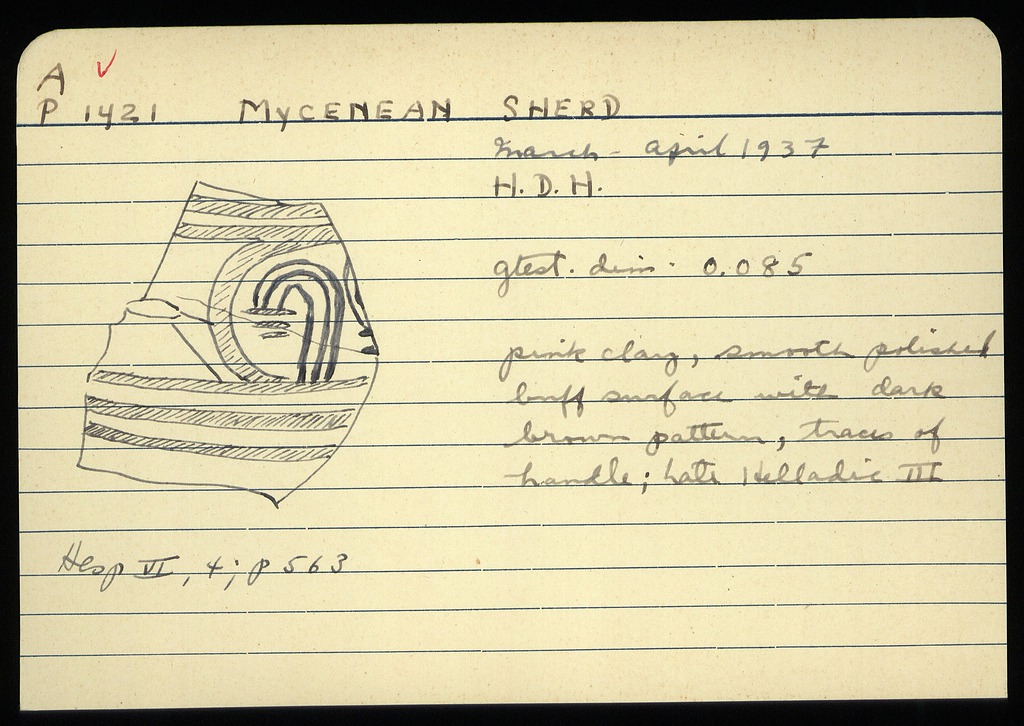 A
P 1421 MYCENEAN SHERD
March - April 1937
H. D. H.
gtest. dim. 0.085
pink clay, smooth polished
buff surface with dark
brown pattern, traces of
handle; Late Helladic III
Hesp VI, 4; p 563